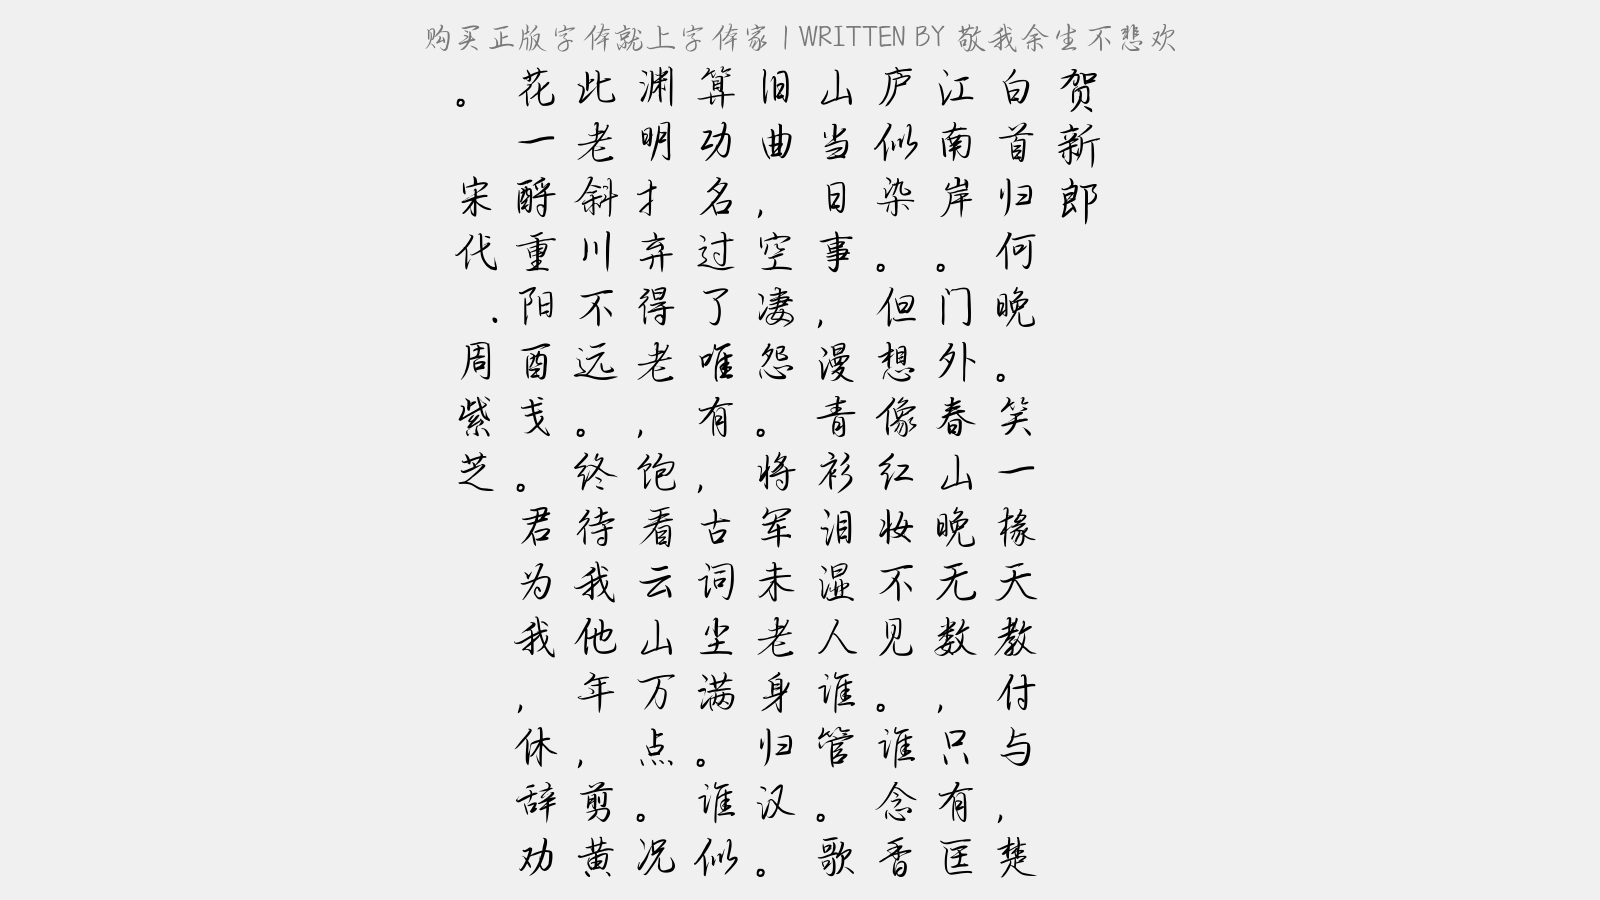 购买正版字体就上字体家 | WRITTEN BY 敬我余生不悲欢
贺新郎
白首归何晚。笑一椽天教付与，楚
江南岸。门外春山晚无数，只有匡
庐似染。但想像红妆不见。谁念香
山当日事，漫青衫泪湿人谁管。歌
旧曲，空凄怨。将军未老身归汉。
算功名过了唯有，古词尘满。谁似
渊明才弃得老，饱看云山万点。况
此老斜川不远。终待我他年，剪黄
花一酹重阳酉戋。君为我，休辞劝
。 宋代.周紫芝